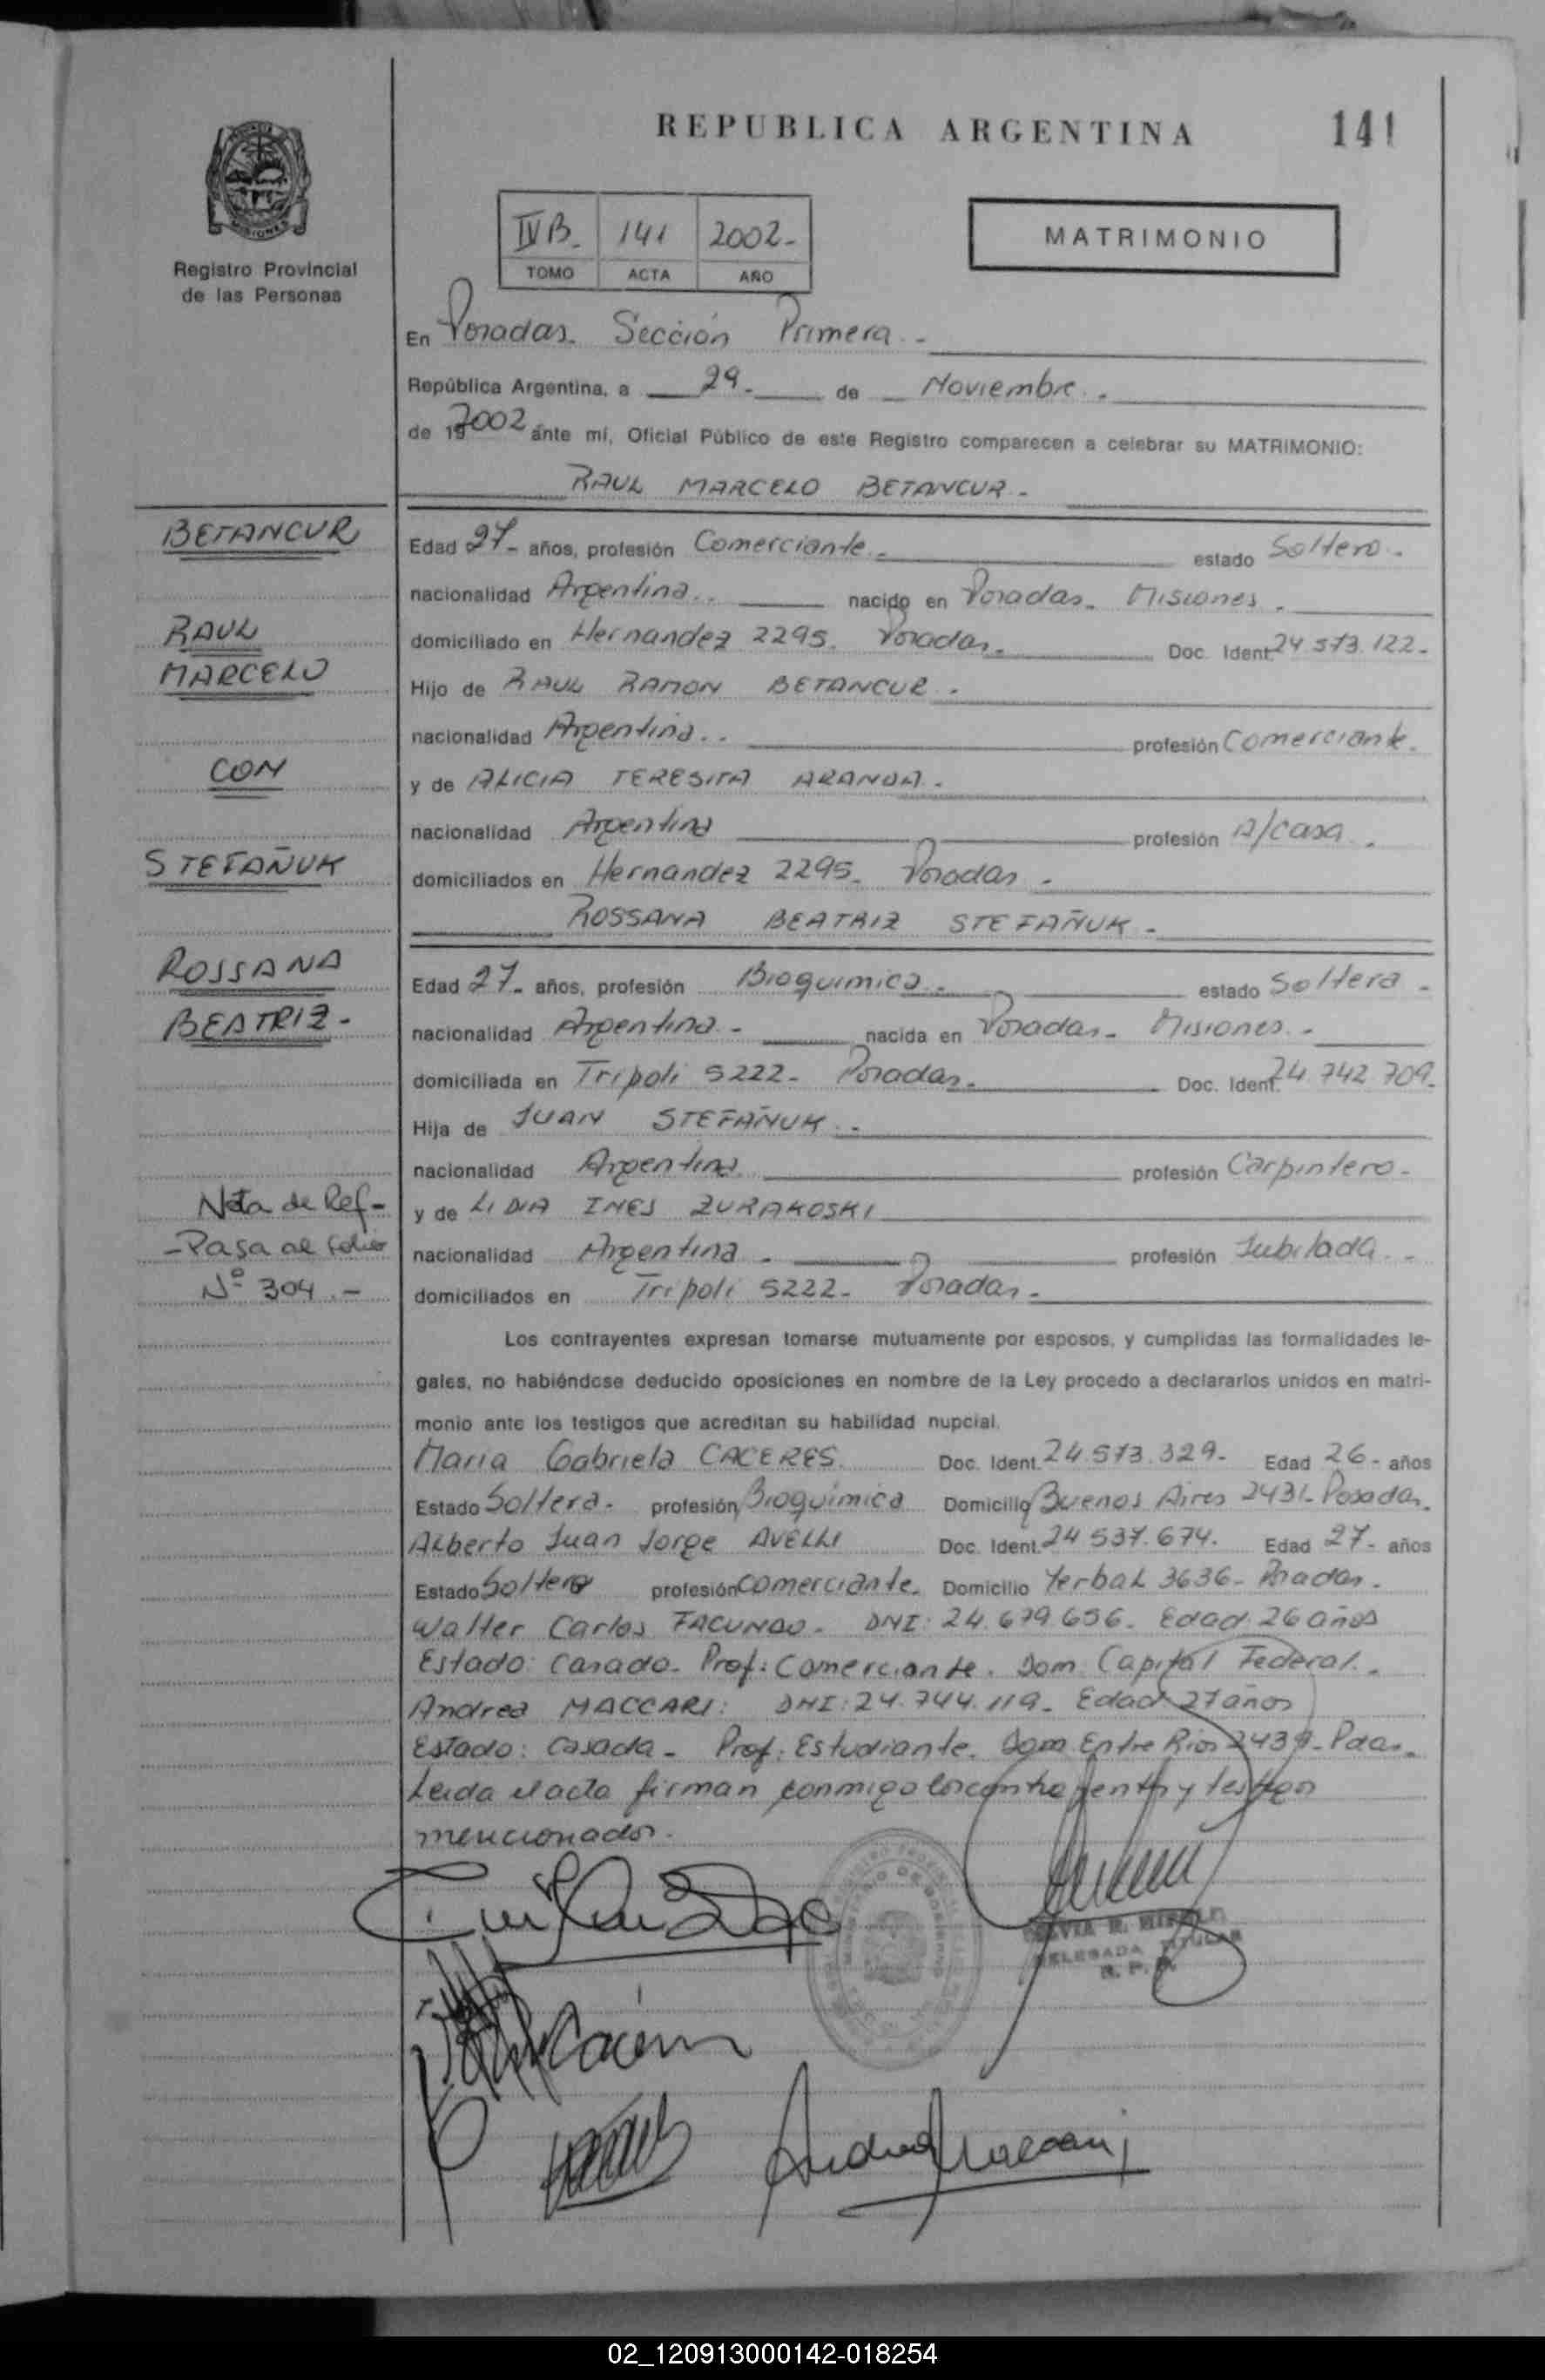 REPUBLICA ARGENTINA
141
IVB. 141 2002-
TOMO ACTA AÑO
MATRIMONIO
MISIONES
Registro Provincial
de las Personas
En Posadas. Sección Primera.-
República Argentina, a 29. de Noviembre.
de 19 2002 ante mí, Oficial Público de este Registro comparecen a celebrar su MATRIMONIO:
RAUL MARCELO BETANCUR.
BETANCUR
RAUL
MARCELO
CON
STEFAÑUK
ROSSANA
BEATRIZ-
Nota de Ref-
-Pasa al folio
Nº 304.-
Edad 27- años, profesión Comerciante.- estado Soltero.
nacionalidad Argentina.. nacido en Posadas. Misiones.
domiciliado en Hernandez 2295. Posadas. Doc. Ident. 24.573.122.
Hijo de RAUL RAMON BETANCUR.
nacionalidad Argentina.. profesión Comerciante.
y de ALICIA TERESITA ARANDA.
nacionalidad Argentina profesión A/casa.
domiciliados en Hernandez 2295. Posadas.
ROSSANA BEATRIZ STEFAÑUK-
Edad 27- años, profesión Bioquimica.- estado Soltera-
nacionalidad Argentina- nacida en Posadas- Misiones.-
domiciliada en Tripoli 5222- Posadas. Doc. Ident. 24.742.709.
Hija de JUAN STEFAÑUK.-
nacionalidad Argentina profesión Carpintero-
y de LIDIA INES ZURAKOSKI
nacionalidad Argentina. profesión Jubilada.-
domiciliados en Tripoli 5222- Posadas-
Los contrayentes expresan tomarse mutuamente por esposos, y cumplidas las formalidades le-
gales, no habiéndose deducido oposiciones en nombre de la Ley procedo a declararlos unidos en matri-
monio ante los testigos que acreditan su habilidad nupcial.
Maria Gabriela CACERES. Doc. Ident. 24.573.329- Edad 26- años
Estado Soltera. profesión Bioquimica Domicilio Buenos Aires 2431- Posadas.
Alberto Juan Jorge AVELLI Doc. Ident. 24.537.674. Edad 27- años
Estado Soltero profesión comerciante. Domicilio Yerbal 3636- Posadas.
Walter Carlos FACUNDO. DNI: 24.679.656. Edad 26 años
Estado: Casado. Prof: Comerciante. Dom. Capital Federal.
Andrea MACCARI: DNI: 24.744.119- Edad 27 años
Estado: Casada- Prof: Estudiante. Dom Entre Rios 2439- Pdas.
Leida el acta firman conmigo los contrayentes y testigos
mencionados.
DELEGADA TITULAR
R. P. P.
02_120913000142-018254